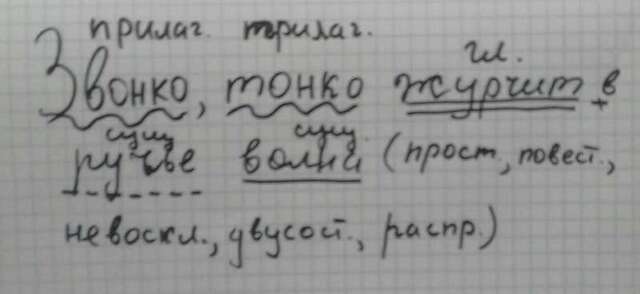 прилаг. прилаг.
гл.
Звонко, тонко журчит в
сущ сущ.
ручье волна (прост., повест.,
невоскл., двусост., распр.)